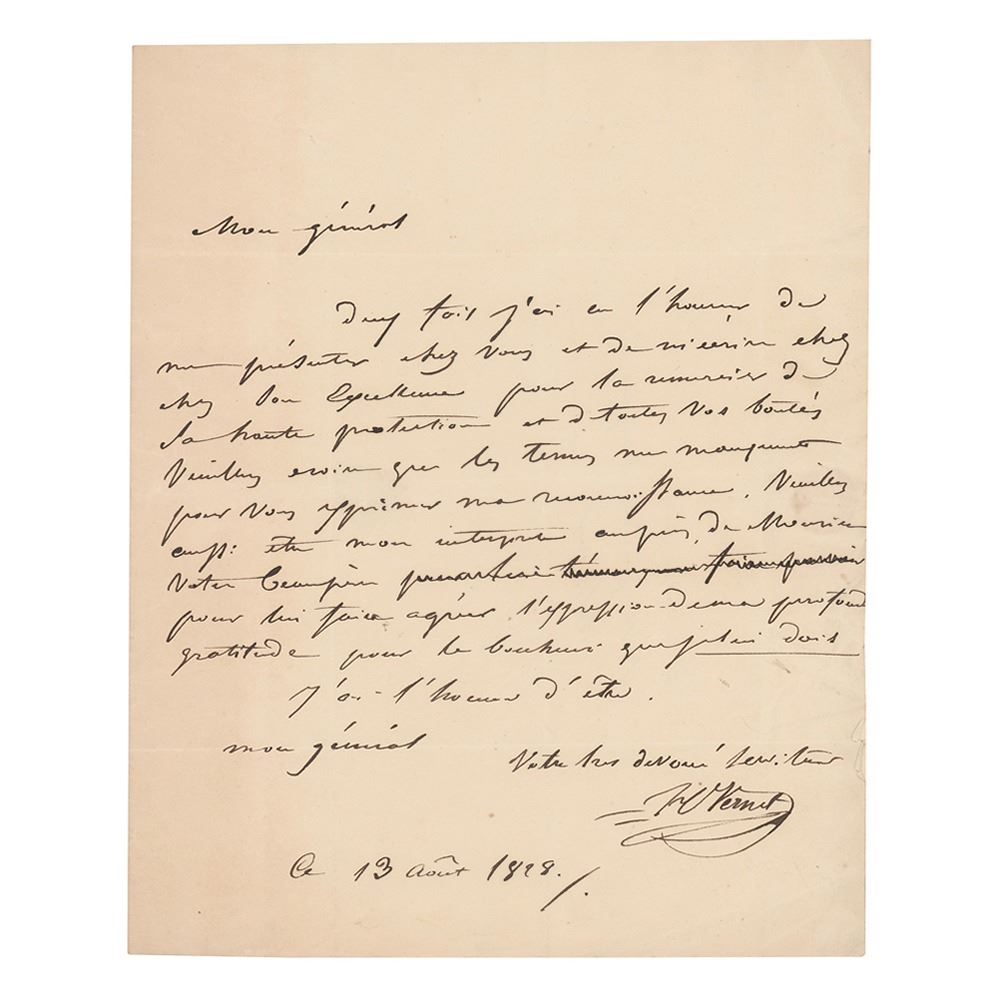 Mon général
Deux fois j'ai eu l'honneur de
me présenter chez vous et chez
chez Son Excellence pour la remercier de
sa haute protection et de toutes vos bontés
Veuillez croire que les termes me manquent
pour vous exprimer ma reconnoissance. Veuillez
aussi être mon interprète auprès de Monsieur
votre beaupère
pour lui faire agréer l'expression de ma profonde
gratitude pour le bonheur que je lui dois
J'ai l'honneur d'être.
mon général
Votre tres dévoué serviteur
H Vernet
Ce 13 Août 1828.